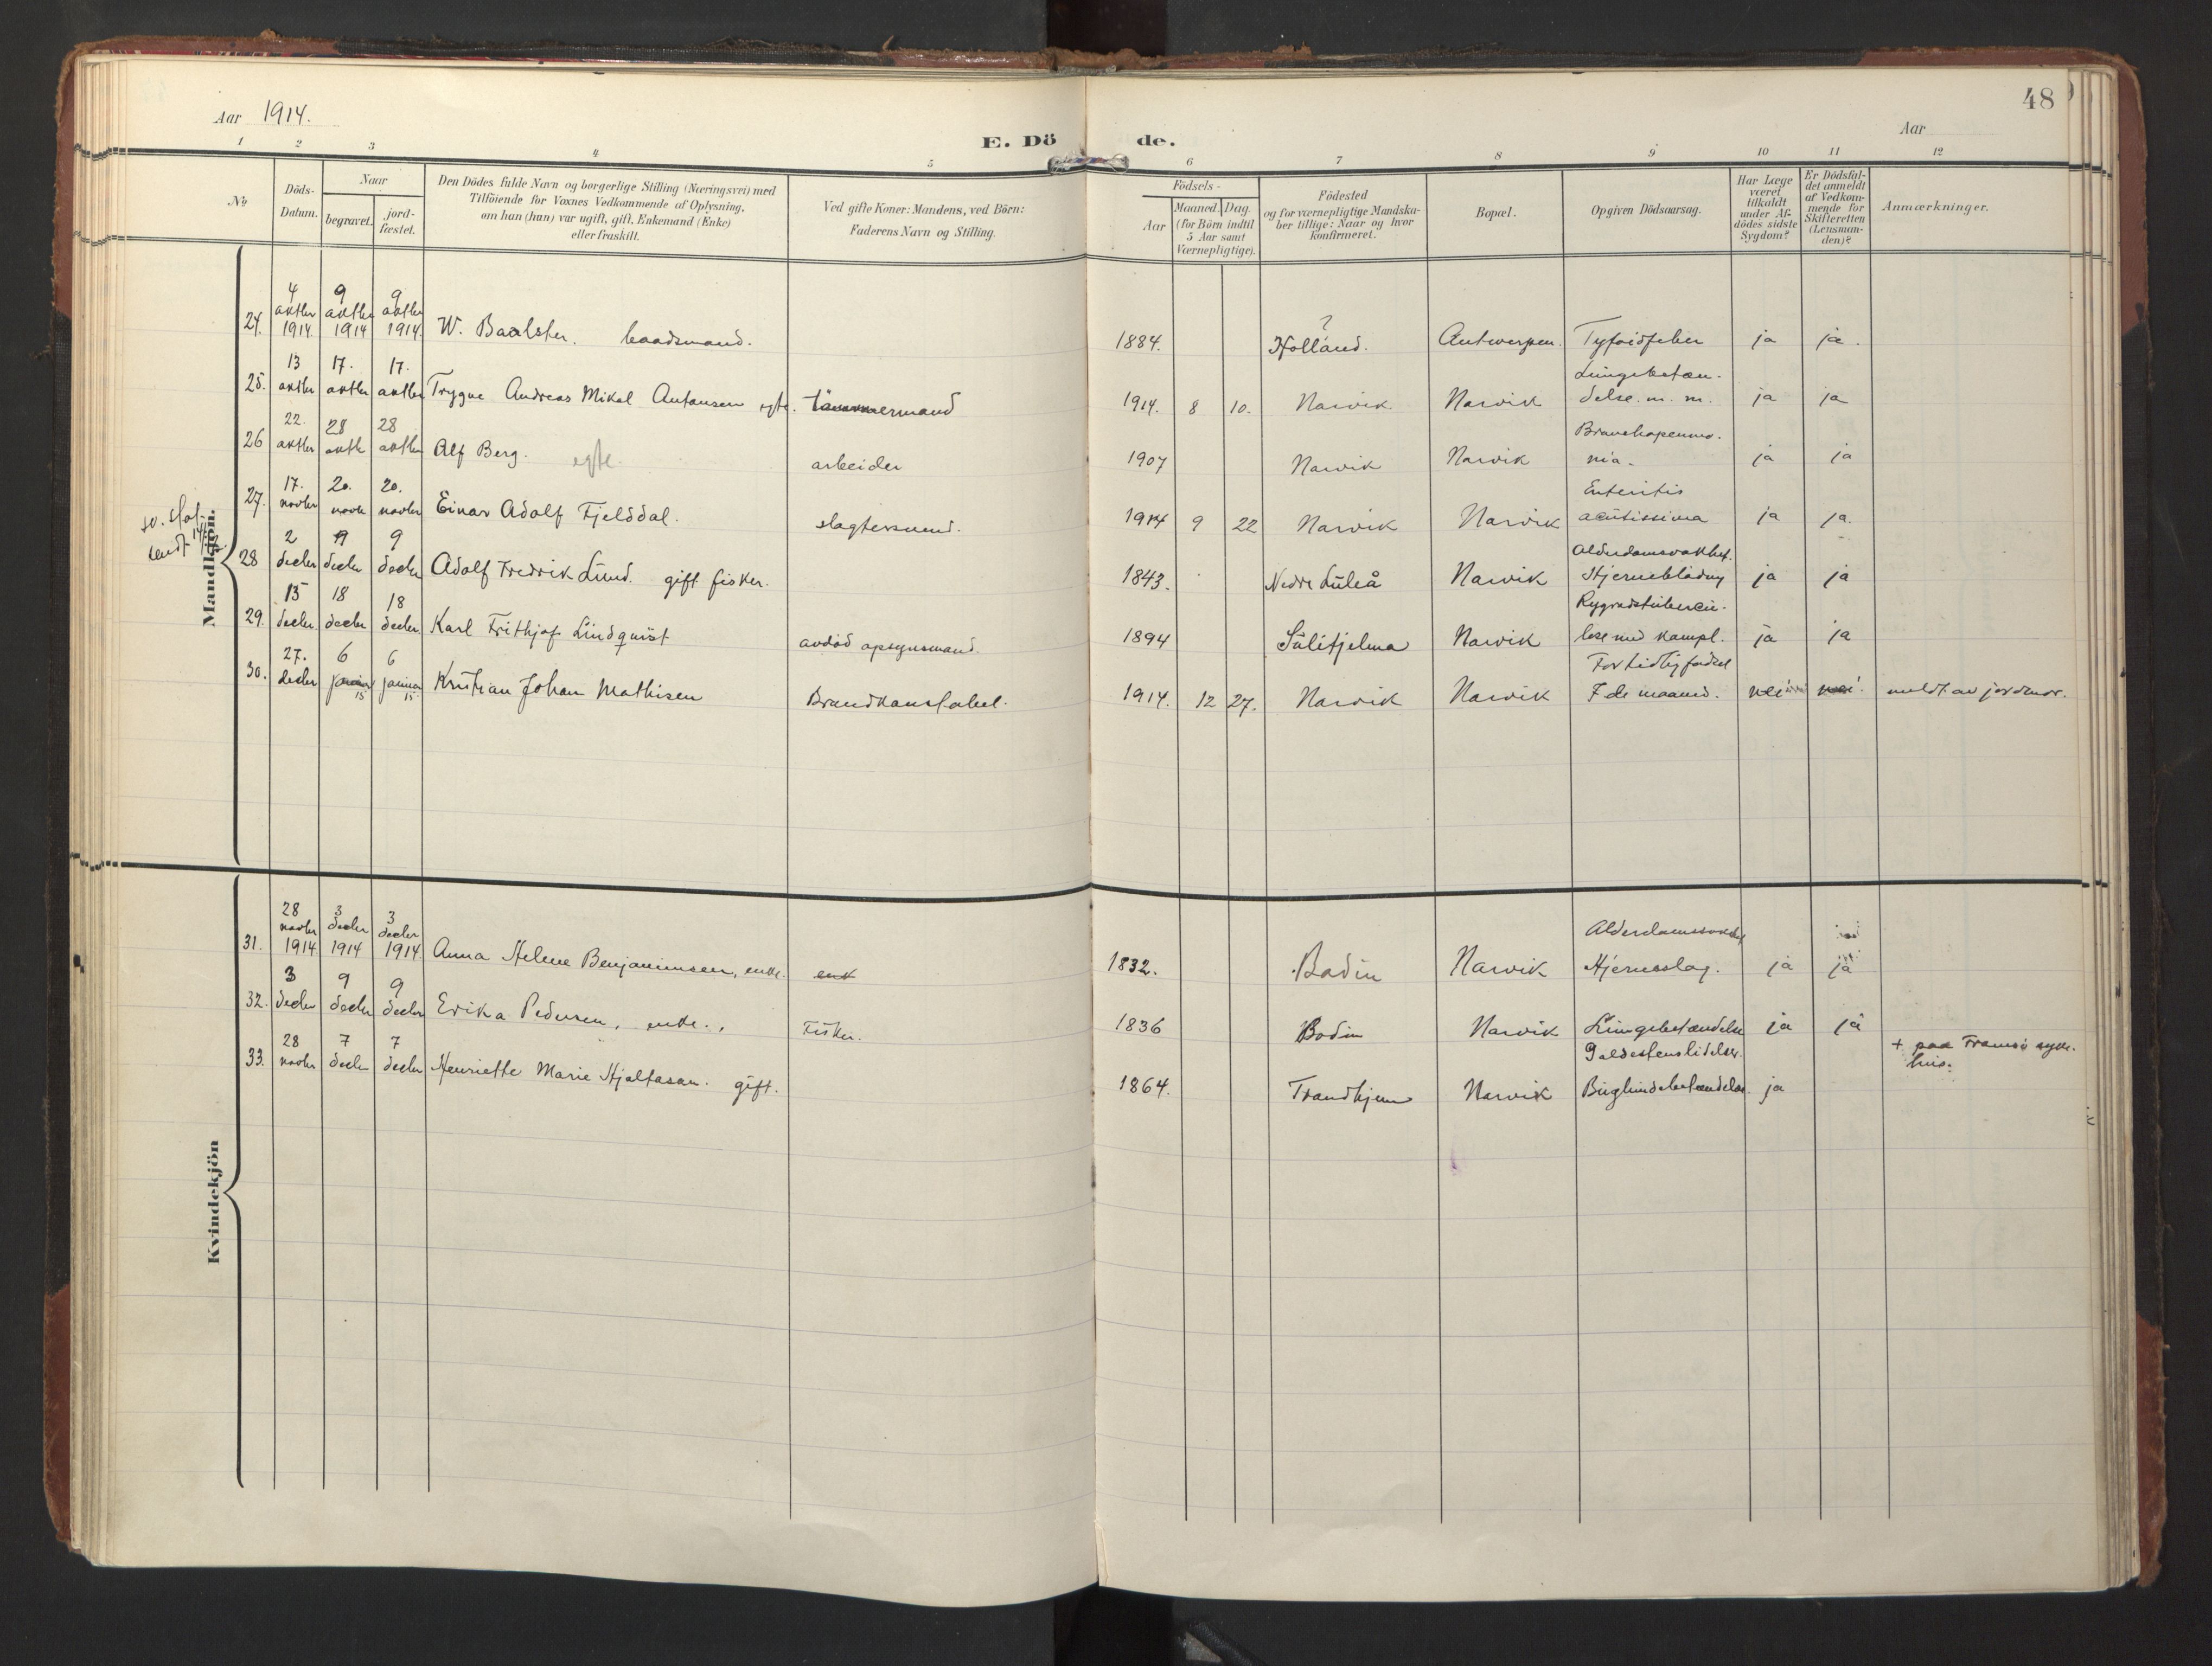 48
Aar 1914.
Aar
E. Döde.
1 2 3 4 5 6 7 8 9 10 11 12
No
Döds-
Datum.
Naar
begravet.
jord-
fæstet.
Den Dödes fulde Navn og borgerlige Stilling (Næringsvei) med
Tilföiende for Voxnes Vedkommende af Oplysning,
om han (hun) var ugift, gift, Enkemand (Enke)
eller fraskilt.
Ved gifte Koner: Mandens, ved Börn:
Faderens Navn og Stilling.
Födsels-
Aar
Maaned. Dag.
(for Börn indtil
5 Aar samt
Værnepligtige).
Födested
og for værnepligtige Mandska-
ber tillige: Naar og hvor
konfirmeret.
Bopæl.
Opgiven Dödsaarsag.
Har Læge
været
tilkaldt
under Af-
dödes sidste
Sygdom?
Er Dödsfal-
det anmeldt
af Vedkom-
mende for
Skifteretten
(Lensman-
den)?
Anmærkninger.
Mandkjön.
24. 4 oktbr 1914. 9 oktbr 1914 9 oktbr 1914. W. Baalster. baadsmand. 1884. ? Holland. Antwerpen. Tyfoidfeber ja ja.
25. 13 oktbr 17. oktbr 17. oktbr Trygve Andreas Mikal Antonsen egte. tømmermand 1914. 8 10. Narvik Narvik Lungebetæn-
delse m. m. ja ja
26 22. oktbr 28 oktb 28 oktbr Alf Berg. egte. arbeider 1907 Narvik Narvik Bronchopenmo-
nia. ja ja
27. 17. novbr 20. novbr 20. novbr Einar Adolf Fjelddal. slagtersvend. 1914 9 22 Narvik Narvik Enteritis
acutissima ja ja.
sv. stat.
sendt
28 2 decbr 9 decbr 9 decbr Adolf Fredrik Lund. gift fisker. 1843. Nedre Luleå Narvik Alderdomsvakhet.
Hjerneblødng ja ja
29. 15 decbr 18 decbr 18 decbr. Karl Frithjof Lindquist avdød opsynsmand. 1894 Sulitjelma Narvik Rygradstubercu-
lose med kompl. ja ja
30. 27. decbr 6 januar 15 6 januar 15. Kristian Johan Mathisen Brandkonstabel. 1914. 12 27. Narvik Narvik For tidlig fødsel
7de maaned. nei nei. meldt av jordmor.
Kvindekjön
31. 28 novbr 1914 3 decbr 1914 3 decbr 1914 Anna Helene Benjaminsen, enke. enk 1832. Bodin Narvik Alderdomssvakhet
Hjerneslag. ja ja
32. 3 decbr 9 decbr 9 decbr Erika Pedersen, enke., Fisker. 1836 Bodin Narvik Lungebetændelse ja ja
33. 28 novbr 7 decbr 7 decbr Henriette Marie Hjaltason. gift. 1864. Trondhjem Narvik Galdestenslidelse.
Bughindebetændelse. ja + paa Tromsø syke-
hus.